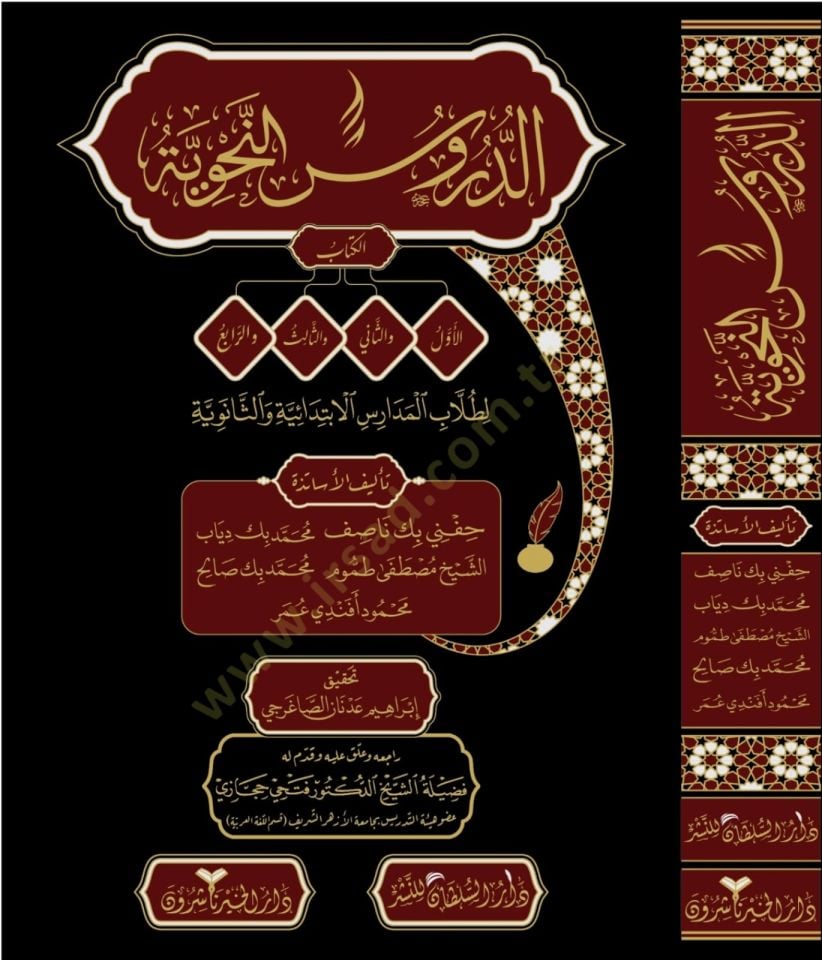 الدُّرُوسُ النَّحْوِيَّةُ
الكِتَابُ
الأَوَّلُ وَالثَّانِي وَالثَّالِثُ وَالرَّابِعُ
لِطُلَّابِ الْمَدَارِسِ الْابْتِدَائِيَّةِ وَالثَّانَوِيَّةِ
تأليف الأساتذة
حِفْنِي بِك نَاصِف مُحَمَّد بِك دِيَاب
الشَّيْخ مُصْطَفَى طَمُوم مُحَمَّد بِك صَالِح
مَحْمُود أَفَنْدِي عُمَر
تحقيق
إِبْرَاهِيم عَدْنَان الصَّاغَرجِي
راجعه وعلّق عليه وقدّم له
فَضِيلَةُ الشَّيْخِ الدُّكْتُور فَتْحِي حِجَازِي
عضو هيئة التدريس بجامعة الأزهر الشريف (قسم اللغة العربية)
دَارُ السُّلْطَان لِلنَّشْرِ
دَارُ الخَيْر نَاشِرُونَ
www.irsad.com.t
الدُّرُوسُ النَّحْوِيَّةُ
تأليف الأساتذة
حِفْنِي بِك نَاصِف
مُحَمَّد بِك دِيَاب
الشَّيْخ مُصْطَفَى طَمُوم
مُحَمَّد بِك صَالِح
مَحْمُود أَفَنْدِي عُمَر
دَارُ السُّلْطَان لِلنَّشْرِ
دَارُ الخَيْر نَاشِرُونَ